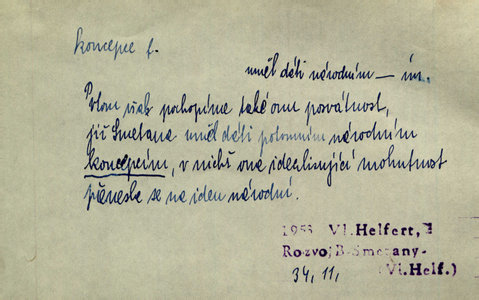 koncepce f.
uměl dáti národním — ím.
Potom však pochopíme také onu posvátnost,
již Smetana uměl dáti potomním národním
koncepcím, v nichž ona idealisující mohutnost
přenesla se na ideu národní.
1953 Vl. Helfert,
Rozvoj B. Smetany-
34, 11, (Vl. Helf.)